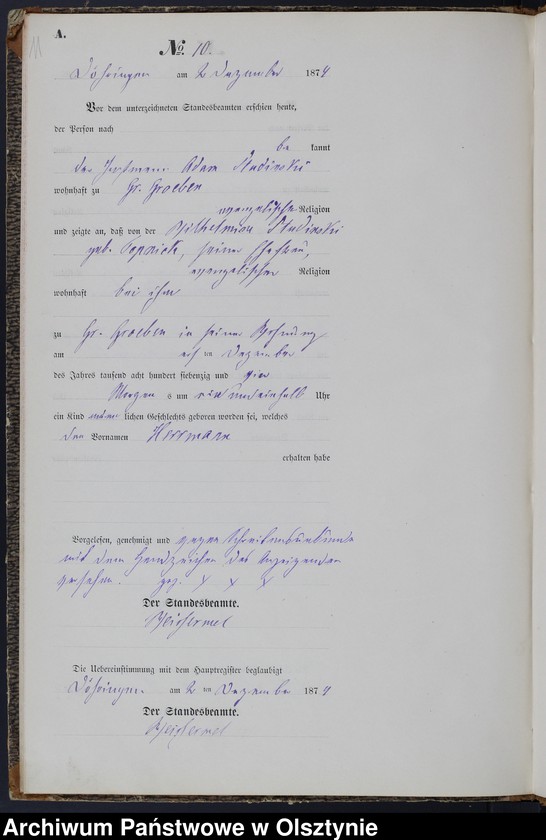 A.
11
No. 10.
Döhringen am 2 Dezember 1874
Vor dem unterzeichneten Standesbeamten erschien heute,
der Person nach
be kannt
der Adam
wohnhaft zu Gr. Groeben
evangelischer Religion
und zeigte an, daß von der Wilhelmine
geb. seiner Ehefrau,
evangelischer Religion
wohnhaft bei ihm
zu Gr. Groeben in seiner Wohnung
am ten Dezember
des Jahres tausend acht hundert siebenzig und vier
Morgen s um Uhr
ein Kind männ lichen Geschlechts geboren worden sei, welches
den Vornamen Herrmann
erhalten habe
Vorgelesen, genehmigt und wegen Schreibensunkunde
mit dem Handzeichen des Anzeigenden
versehen. gez. X X X
Der Standesbeamte.
Die Uebereinstimmung mit dem Hauptregister beglaubigt
Döhringen am 2 ten Dezember 1874
Der Standesbeamte.
Archiwum Państwowe w Olsztynie